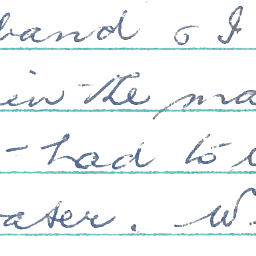 band & I
in the ma
- had to
ater. W